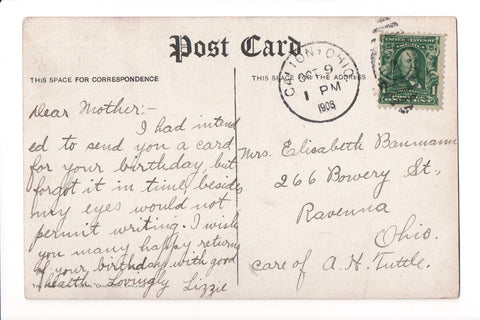 Post Card
THIS SPACE FOR CORRESPONDENCE
THIS SPACE FOR THE ADDRESS
CANTON, OHIO
OCT 9
1 PM
1909
Dear Mother:-
I had intend
ed to send you a card
for your birthday, but
forgot it in time, besides
my eyes would not
permit writing. I wish
you many happy returns
of your birthday with good
health. Lovingly
Lizzie
Mrs. Elisabeth Baumann
266 Bowery St.,
Ravenna
Ohio.
care of A. H. Tuttle.